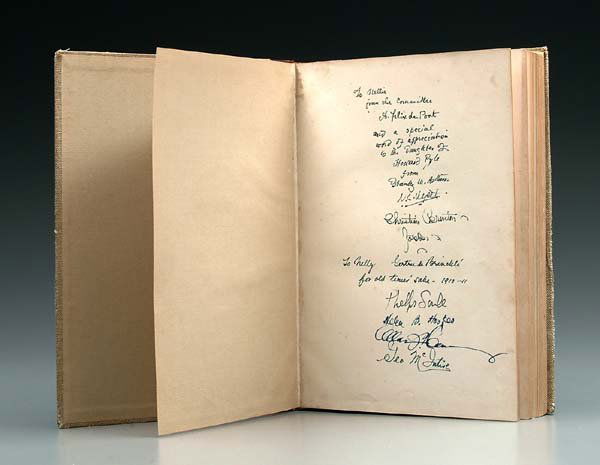 To Nellie
from the Committee
A. Felix du Pont
and a special
word of appreciation
to the daughter of
Howard Pyle
from
Stanley W. Arthurs
N.C. Wyeth
Christian Brinton
To Nelly Gertrude Brincklé
for old times' sake - 1910-11
Phelps Soule
Helen B.
Geo Mc